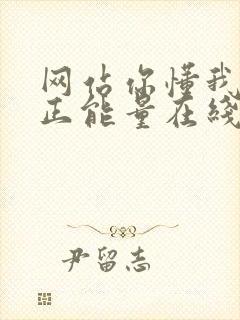 网站你懂我
正能量在线
尹留志